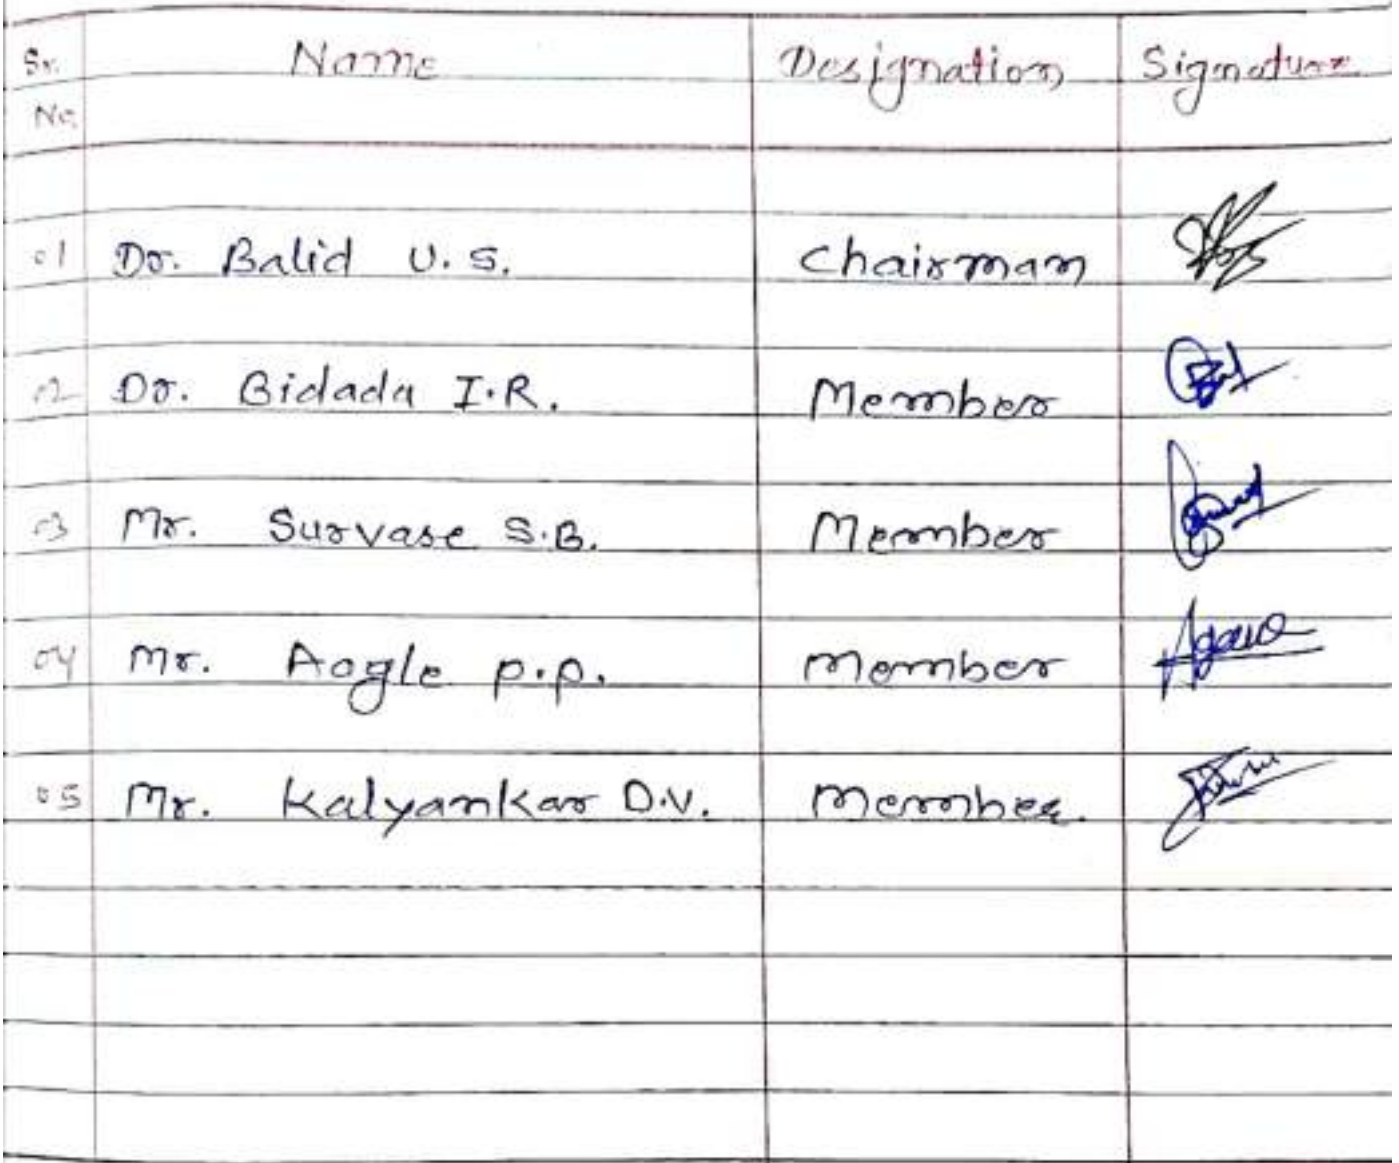 Sr. No. Name Designation Signature
01 Dr. Balid U.S. Chairman
02 Dr. Bidada I.R. Member
03 Mr. Survase S.B. Member
04 Mr. Aagle P.P. Member
05 Mr. Kalyankar D.V. Member.